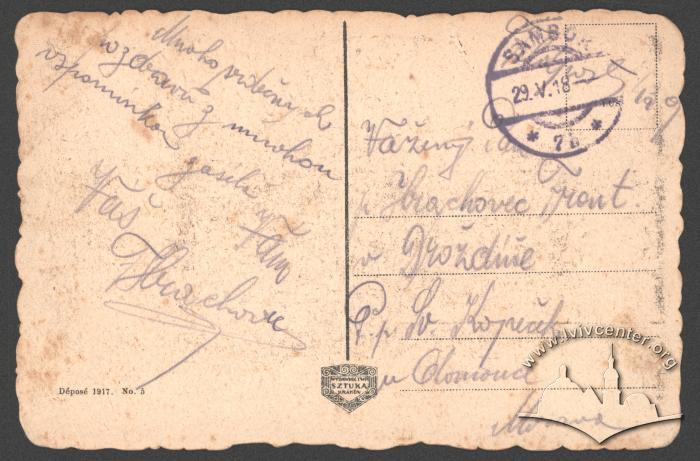 Mnoho srdečných
pozdravů z mnohou
vspomínkou zasílá
Vám
Váš
Hrachovec
Déposé 1917. No. 5
WYDAWNICTWO
SZTUKA
KRAKÓW
SAMBOR
29.V.18
* 7b *
Vážený pán
p. Hrachovec Frant.
v Droždíně
P. p. Sv. Kopeček
u Olomouce
Morava
www.lvivcenter.org